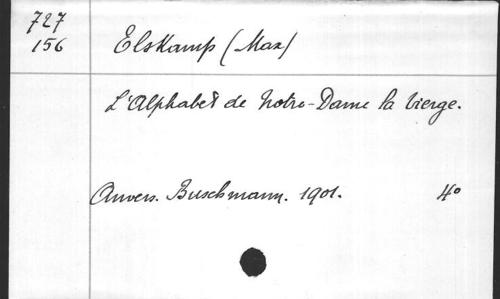 727
156
Elskamp (Max)
L'Alphabet de Notre-Dame la Vierge.
Anvers. Buschmann. 1901. 4°